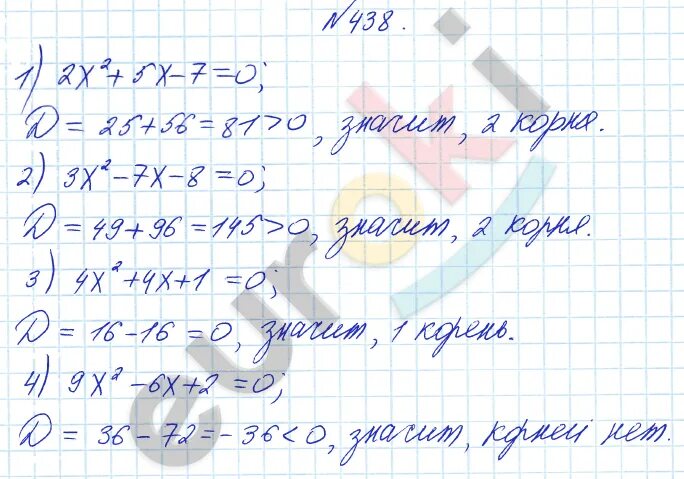 №438.
1) 2x²+5x-7=0;
D = 25+56=81>0, значит, 2 корня.
2) 3x²-7x-8=0;
D = 49+96=145>0, значит, 2 корня.
3) 4x²+4x+1=0;
D = 16-16=0, значит, 1 корень.
4) 9x²-6x+2=0;
D = 36-72=-36<0, значит, корней нет.
euroki